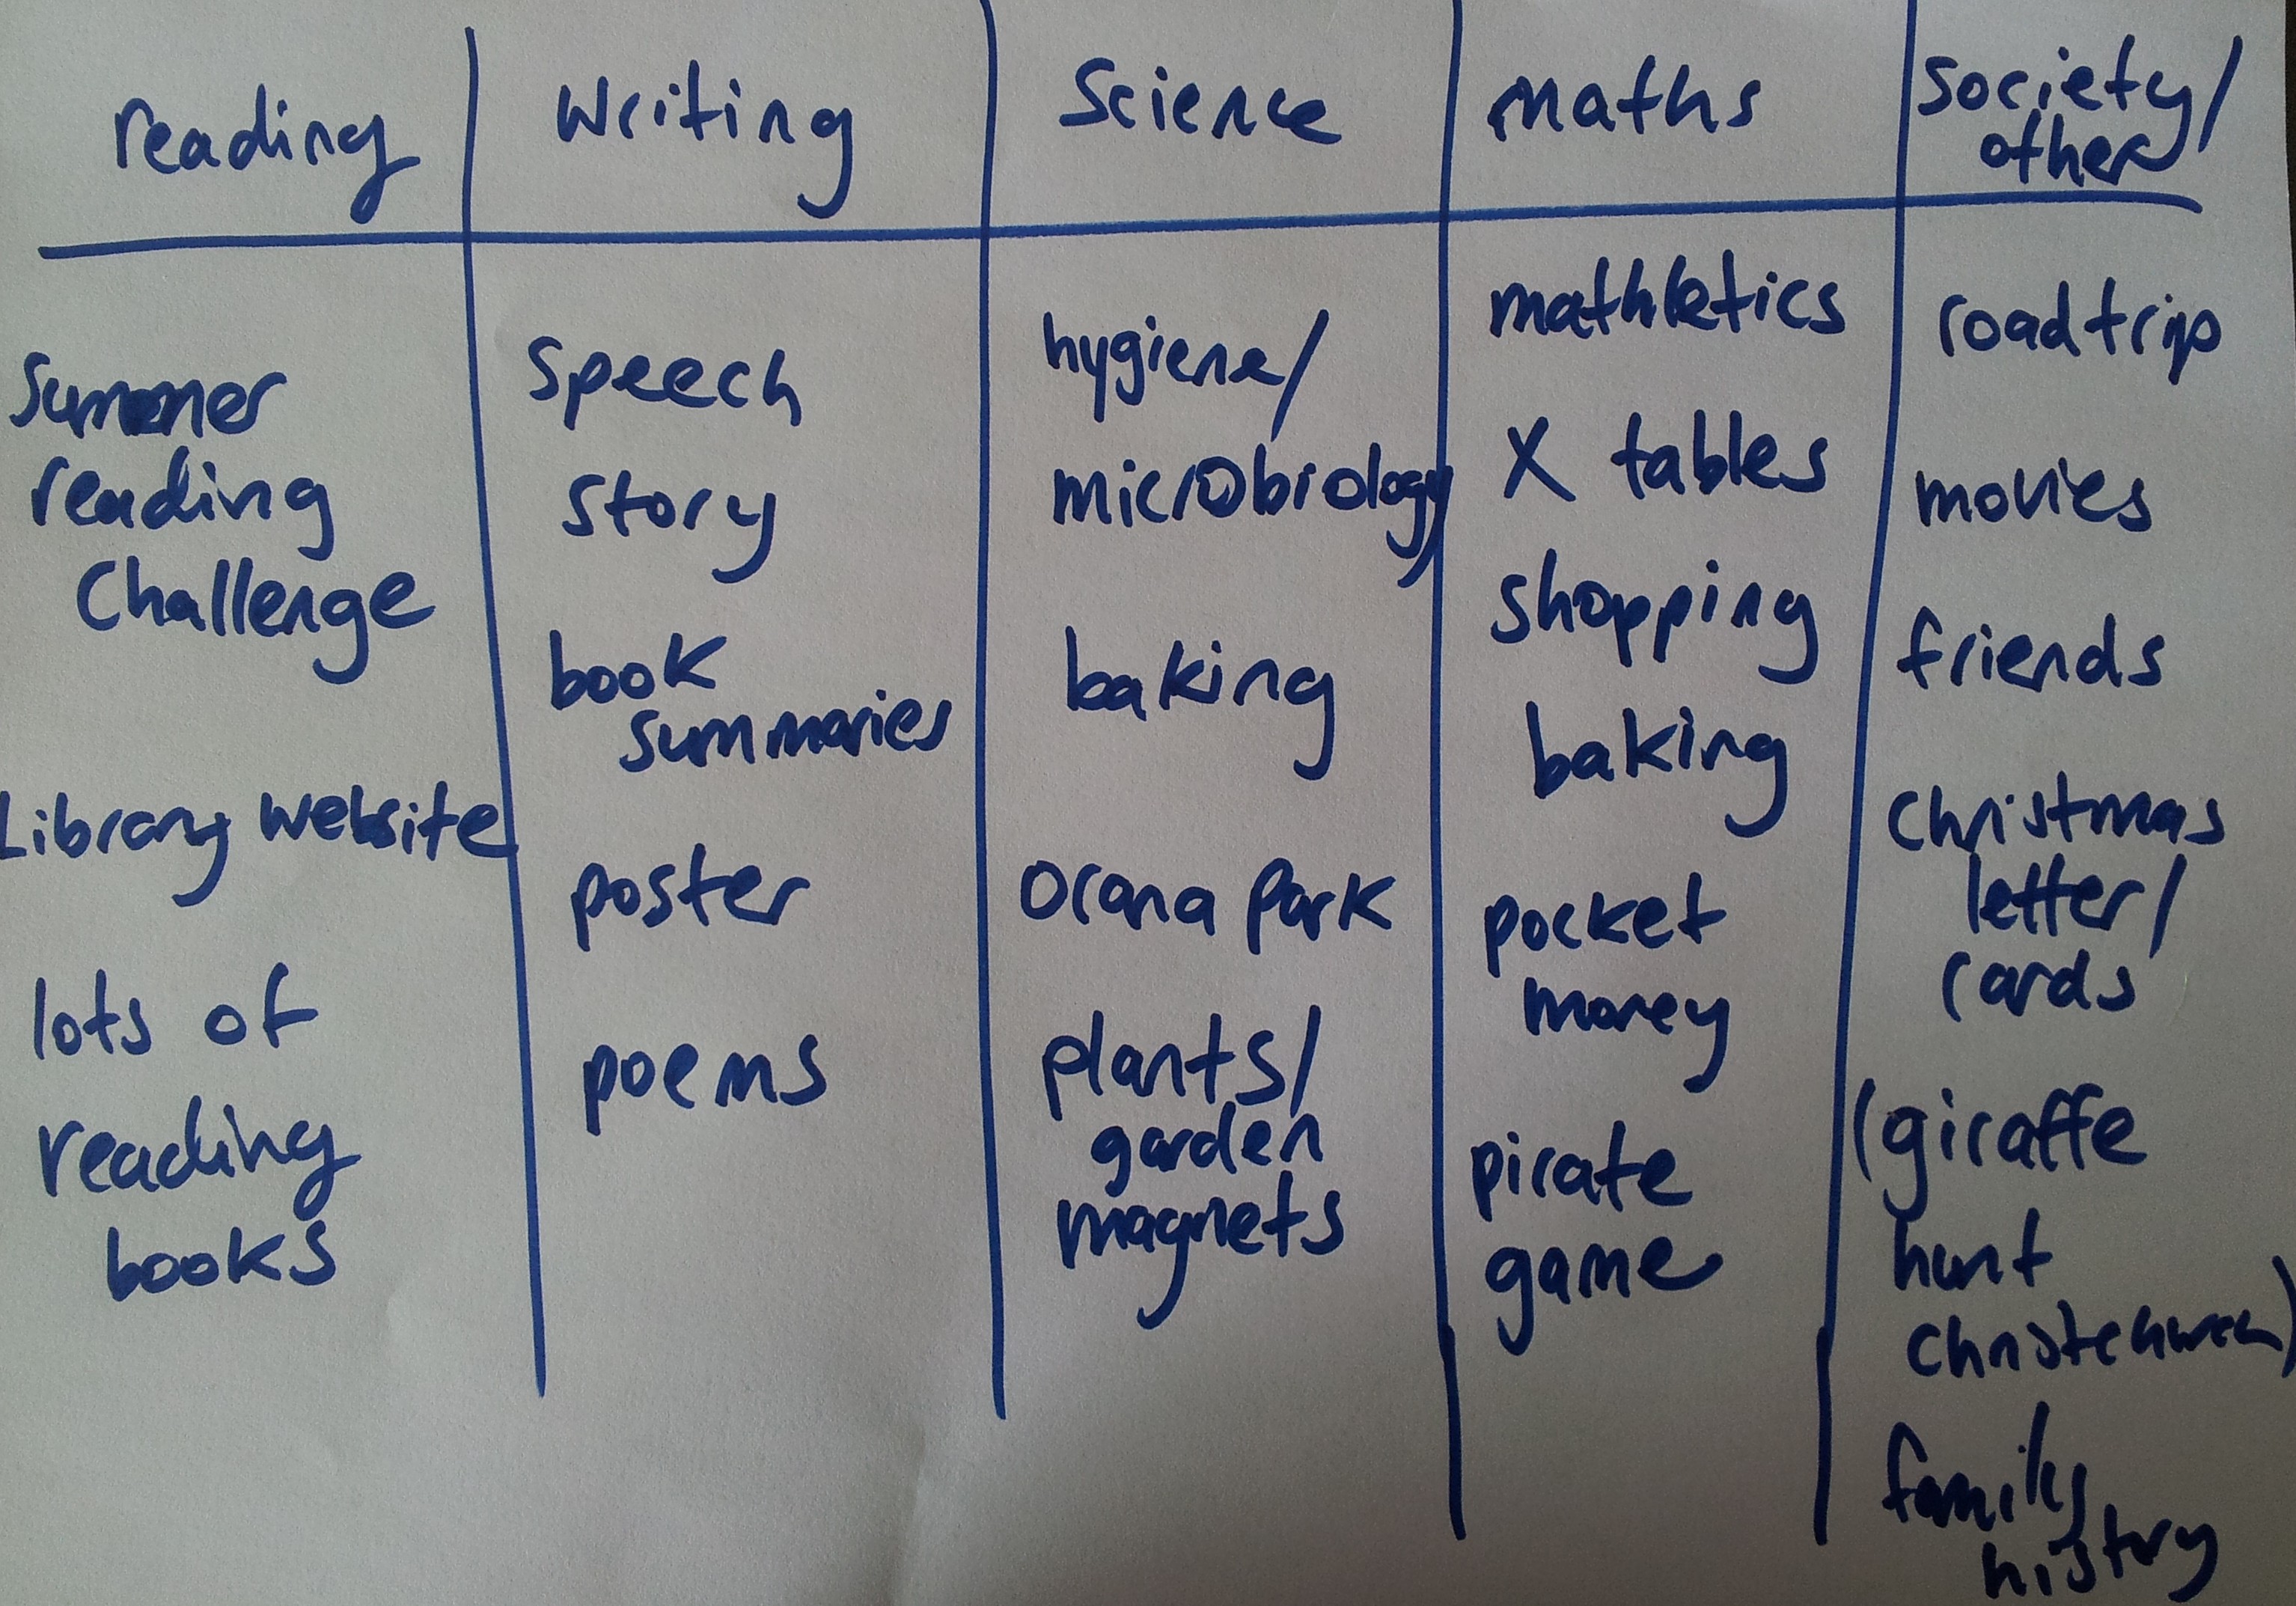 reading
Summer
reading
Challenge
Library website
lots of
reading
books
Writing
Speech
Story
book
summaries
poster
poems
Science
hygiene/
microbiology
baking
Orana Park
plants/
garden
magnets
maths
mathletics
X tables
shopping
baking
pocket
money
pirate
game
Society/
other
roadtrip
movies
friends
Christmas
letter/
cards
(giraffe
hunt
Christchurch)
family
history